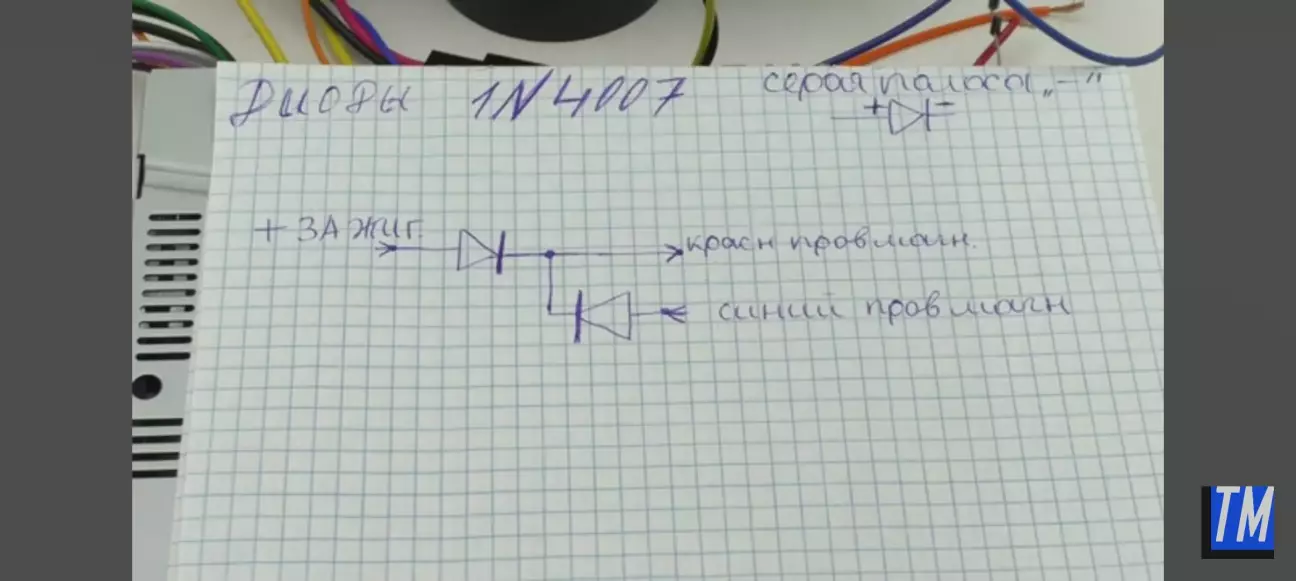 Диоды 1N4007 серая паласа „-"
+ -
+ ЗАЖИГ.
красн пров магн.
синий пров магн
TM